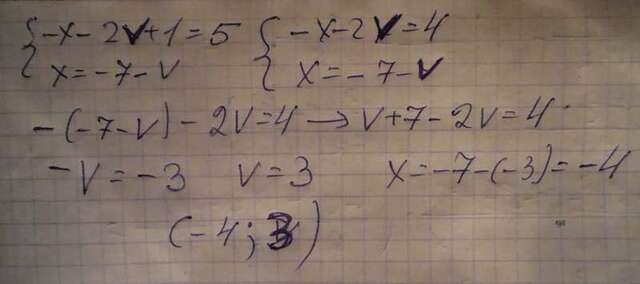 {-x-2v+1=5 {-x-2v=4
x=-7-v x=-7-v
-(-7-v)-2v=4→v+7-2v=4
-v=-3 v=3 x=-7-(-3)=-4
(-4;3)